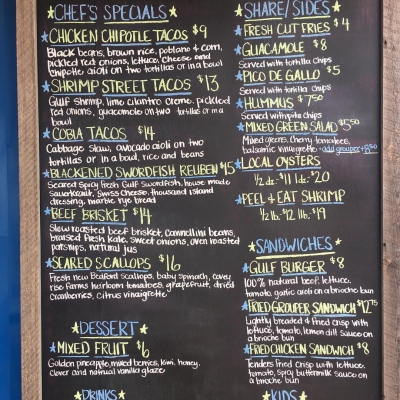 CHEF'S SPECIALS
CHICKEN CHIPOTLE TACOS $9
Black beans, brown rice, poblano + corn,
pickled red onions, lettuce, cheese and
chipotle aioli on two tortillas or in a bowl
SHRIMP STREET TACOS $13
Gulf shrimp, lime cilantro creme, pickled
red onions, guacamole on two tortillas or in a
bowl
COBIA TACOS $14
Cabbage slaw, avocado aioli on two
tortillas or in a bowl, rice and beans
BLACKENED SWORDFISH REUBEN $15
Seared spicy fresh Gulf Swordfish, house made
Sauerkraut, Swiss cheese, thousand island
dressing, marble rye bread
BEEF BRISKET $14
Slow roasted beef brisket, cannellini beans,
braised fresh kale, sweet onions, oven roasted
parsnips, natural jus
SEARED SCALLOPS $16
Fresh New Bedford Scallops, baby spinach,
rise farms heirloom tomatoes, grapefruit, dried
cranberries, citrus vinaigrette
DESSERT
MIXED FRUIT $6
Golden pineapple, mixed berries, kiwi, honey,
clover and natural vanilla glaze
DRINKS
SHARE/SIDES
FRESH CUT FRIES $4
GUACAMOLE $8
Served with tortilla chips
PICO DE GALLO $5
Served with tortilla chips
HUMMUS $7.50
Served with pita chips
MIXED GREEN SALAD $5.50
Mixed greens, cherry tomatoes,
balsamic vinaigrette - add grouper +8.50
LOCAL OYSTERS
1/2 dz. $11 1 dz. $20
PEEL + EAT SHRIMP
1/2 lb. $12 1 lb. $19
SANDWICHES
GULF BURGER $8
100% natural beef, lettuce,
tomato, garlic aioli on a brioche bun
FRIED GROUPER SANDWICH $12.75
Lightly breaded + fried crisp with
lettuce, tomato, lemon dill sauce on
a brioche bun
FRIED CHICKEN SANDWICH $8
Tenders fried crisp with lettuce,
tomato, spicy buttermilk sauce on
a brioche bun
KIDS